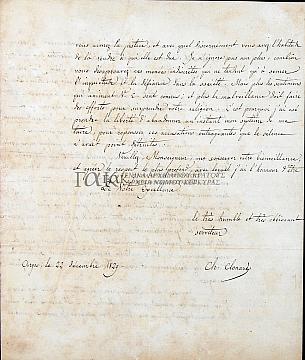 vous aimez la justice, et avec quel discernement vous avez l'habitude
de la rendre à qui elle est due. Je n'ignore pas non plus, combien
vous désapprouvez ces menées indiscrètes qui ne tendent qu'à semer
l'inquiétude et la défiance dans la société. Mais plus les intentions
qui animent V. E. sont connues, et plus la malveillance doit faire
des efforts pour surprendre votre religion. C'est pourquoi j'ai osé
prendre la liberté d'abandonner un instant mon système de me
taire, pour repousser ces accusations outrageantes que le silence
n'avait point détruites.
Veuillez, Monseigneur, me conserver votre bienveillance,
et agréer le respect le plus profond, avec lequel j'ai l'honneur d'être
ΓΕΝΙΚΑ ΑΡΧΕΙΑ ΤΟΥ ΚΡΑΤΟΥΣ
ΑΡΧΕΙΑ ΝΟΜΟΥ ΚΕΡΚΥΡΑΣ
de Votre Excellence
le très humble et très obéissant
serviteur
Corfou, le 22 Décembre
Ch.